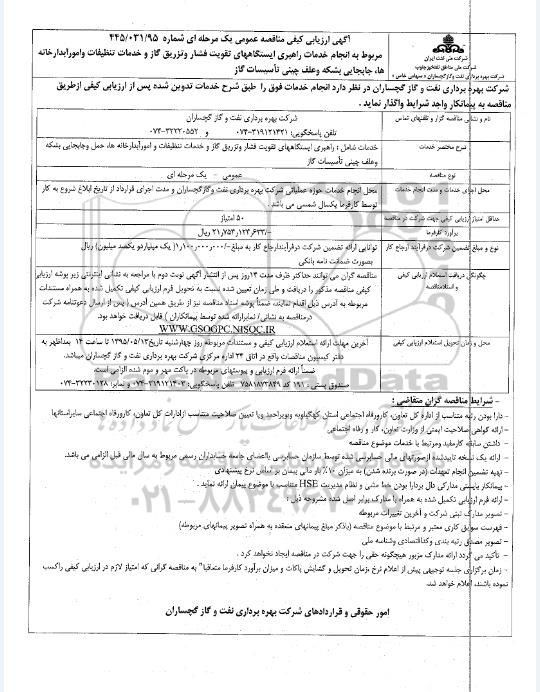 آگهی ارزیابی کیفی مناقصه عمومی یک مرحله ای شماره ۴۴۵/۰۳۱/۹۵
مربوط به انجام خدمات راهبری ایستگاههای تقویت فشار وتزریق گاز و خدمات تنظیفات وامورآبدارخانه
ها، جابجایی بشکه وعلف چینی تأسیسات گاز
شرکت ملی نفت ایران
شرکت ملی مناطق نفتخیز جنوب
شرکت بهره برداری نفت و گاز گچساران « سهامی خاص »
شرکت بهره برداری نفت و گاز گچساران در نظر دارد انجام خدمات فوق را طبق شرح خدمات تدوین شده پس از ارزیابی کیفی ازطریق
مناقصه به پیمانکار واجد شرایط واگذار نماید .
نام و نشانی مناقصه گزار و تلفنهای تماس
شرکت بهره برداری نفت و گاز گچساران
تلفن پاسخگویی: ۳۱۹۲۱۳۲۱-۰۷۴ و ۳۲۲۲۰۵۵۲-۰۷۴
شرح مختصر خدمات
خدمات شامل : راهبری ایستگاههای تقویت فشار وتزریق گاز و خدمات تنظیفات و امورآبدارخانه ها، حمل وجابجایی بشکه
وعلف چینی تأسیسات گاز
نوع مناقصه
عمومی - یک مرحله ای
محل اجرای خدمات و مدت انجام خدمات
محل انجام خدمات حوزه عملیاتی شرکت بهره برداری نفت وگازگچساران و مدت اجرای قرارداد از تاریخ ابلاغ شروع به کار
توسط کارفرما یکسال شمسی می باشد .
حداقل امتیاز ارزیابی کیفی جهت شرکت در مناقصه
۵۰ امتیاز
برآورد کارفرما
نوع و مبلغ تضمین شرکت درفرآیند ارجاع کار
توانایی ارائه تضمین شرکت درفرآیندارجاع کار به مبلغ/-۱٫۱۰۰٫۰۰۰٫۰۰۰( یک میلیاردو یکصد میلیون) ریال
بصورت ضمانت نامه بانکی
چگونگی دریافت استعلام ارزیابی کیفی
و اسنادمناقصه
مناقصه گران می توانند حداکثر ظرف مدت ۱۴روز پس از انتشار آگهی نوبت دوم با مراجعه به نشانی اینترنتی زیر پوشه ارزیابی
کیفی مناقصه مذکور را دریافت و طی زمان تعیین شده نسبت به تحویل فرم ارزیابی کیفی تکمیل شده به همراه مستندات
مربوطه به آدرس ذیل اقدام نمایند، ضمناً پوشه اسناد مناقصه نیز از طریق همین آدرس ( پس از ارسال دعوتنامه شرکت
درمناقصه به نشانی/ نمابرارائه شده توسط پیمانکاران ) قابل دریافت خواهد بود.
WWW.GSOGPC.NISOC.IR
محل و زمان تحویل استعلام ارزیابی کیفی
آخرین مهلت ارائه استعلام ارزیابی کیفی و مستندات مربوطه روز چهارشنبه تاریخ۱۳۹۵/۰۵/۱۳ تا ساعت ۱۴ بعدازظهر به
دفتر کمیسیون مناقصات واقع در اتاق ۳۴ اداره مرکزی شرکت بهره برداری نفت و گاز گچساران میباشد.
ضمناً ارائه فرم ارزیابی و پیوستهای مربوطه در پاکت مهر و موم شده الزامی است.
صندوق پستی : ۱۹۱ کد ۷۵۸۱۸۷۳۸۴۹ تلفن پاسخگویی: ۳۱۹۲۱۴۰۳-۰۷۴ و نمابر: ۳۲۲۳۰۱۲۸-۰۷۴
- شرایط مناقصه گران متقاضی :
- دارا بودن رتبه متناسب از اداره کل تعاون، کارورفاه اجتماعی استان کهگیلویه وبویراحمد ویا تعیین صلاحیت متناسب ازادارات کل تعاون، کارورفاه اجتماعی سایراستانها
- ارائه گواهی صلاحیت ایمنی از وزارت تعاون، کار و رفاه اجتماعی
- داشتن سابقه کارمفید ومرتبط با خدمات موضوع مناقصه
- ارائه یک نسخه تاییدشده ازصورتهای مالی حسابرسی شده توسط سازمان حسابرسی یااعضای جامعه حسابداران رسمی مربوط به سال مالی قبل الزامی می باشد.
- تهیه تضمین انجام تعهدات (در صورت برنده شدن) به میزان ۱۰٪ بار مالی پیمان بر اساس نرخ پیشنهادی
- پیمانکار بایستی مدارکی دال بردارا بودن خط مشی و نظام مدیریت HSE متناسب با موضوع پیمان ارائه نماید .
- ارائه فرم ارزیابی تکمیل شده به همراه با مدارک برابر اصل شده مشروحه ذیل :
- تصویر مدارک ثبتی شرکت و آخرین تغییرات مربوطه
- فهرست سوابق کاری معتبر و مرتبط با موضوع مناقصه (باذکر مبلغ پیمانهای منعقده به همراه تصویر پیمانهای مربوطه)
- تصویر مصدق رتبه بندی وکداقتصادی وشناسه ملی
- تأکید می گردد ارائه مدارک مزبور هیچگونه حقی را جهت شرکت در مناقصه ایجاد نخواهد کرد .
- زمان برگزاری جلسه توجیهی پیش از اعلام نرخ ،زمان تحویل و گشایش پاکات و میزان برآورد کارفرما متعاقبا" به مناقصه گرانی که امتیاز لازم در ارزیابی کیفی راکسب
نموده باشند، اعلام خواهد شد.
امور حقوقی و قراردادهای شرکت بهره برداری نفت و گاز گچساران